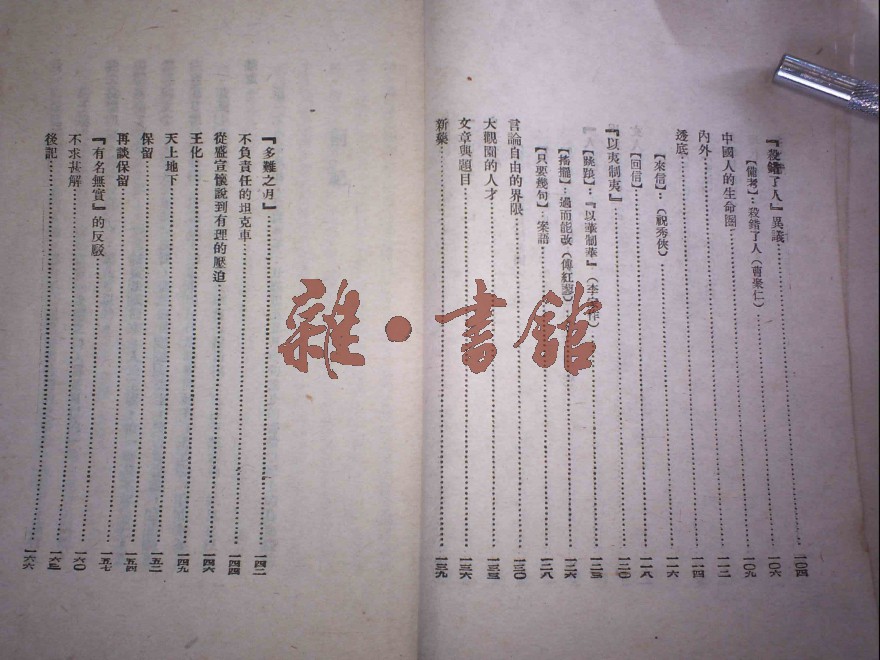 『殺錯了人』異議……一〇四
【備考】：殺錯了人（曹聚仁）……一〇六
中國人的生命圈……一〇九
內外……一一二
透底……一一四
【來信】：（祝秀俠）……一一六
【回信】……一一八
『以夷制夷』……一二〇
【跳踉】：『以華制華』（李 作）……一二三
【搖擺】：過而能改（傅紅蓼）……一二六
【只要幾句】：案語……一二八
言論自由的界限……一三〇
大觀園的人才……一三三
文章與題目……一三六
新藥……一三九
『多難之月』……一四二
不負責任的坦克車……一四四
從盛宣懷說到有理的壓迫……一四六
王化……一四九
天上地下……一五二
保留……一五四
再談保留……一五七
『有名無實』的反駁……一六〇
不求甚解……一六三
後記……一六六
雜·書館